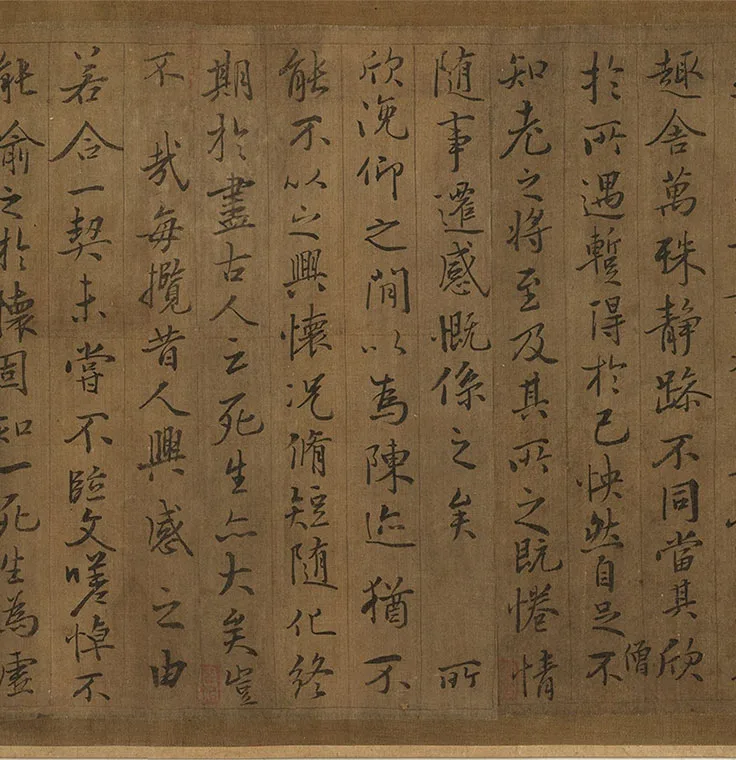 趣舍萬殊静躁不同當其欣
於所遇暫得於己怏然自足不
僧
知老之將至及其所之既惓情
隨事遷感慨係之矣 所
欣俛仰之閒以為陳迹猶不
能不以之興懷況脩短隨化終
期於盡古人云死生亦大矣豈
不 哉每攬昔人興感之由
若合一契未嘗不臨文嗟悼不
能喻之於懷固知一死生為虛